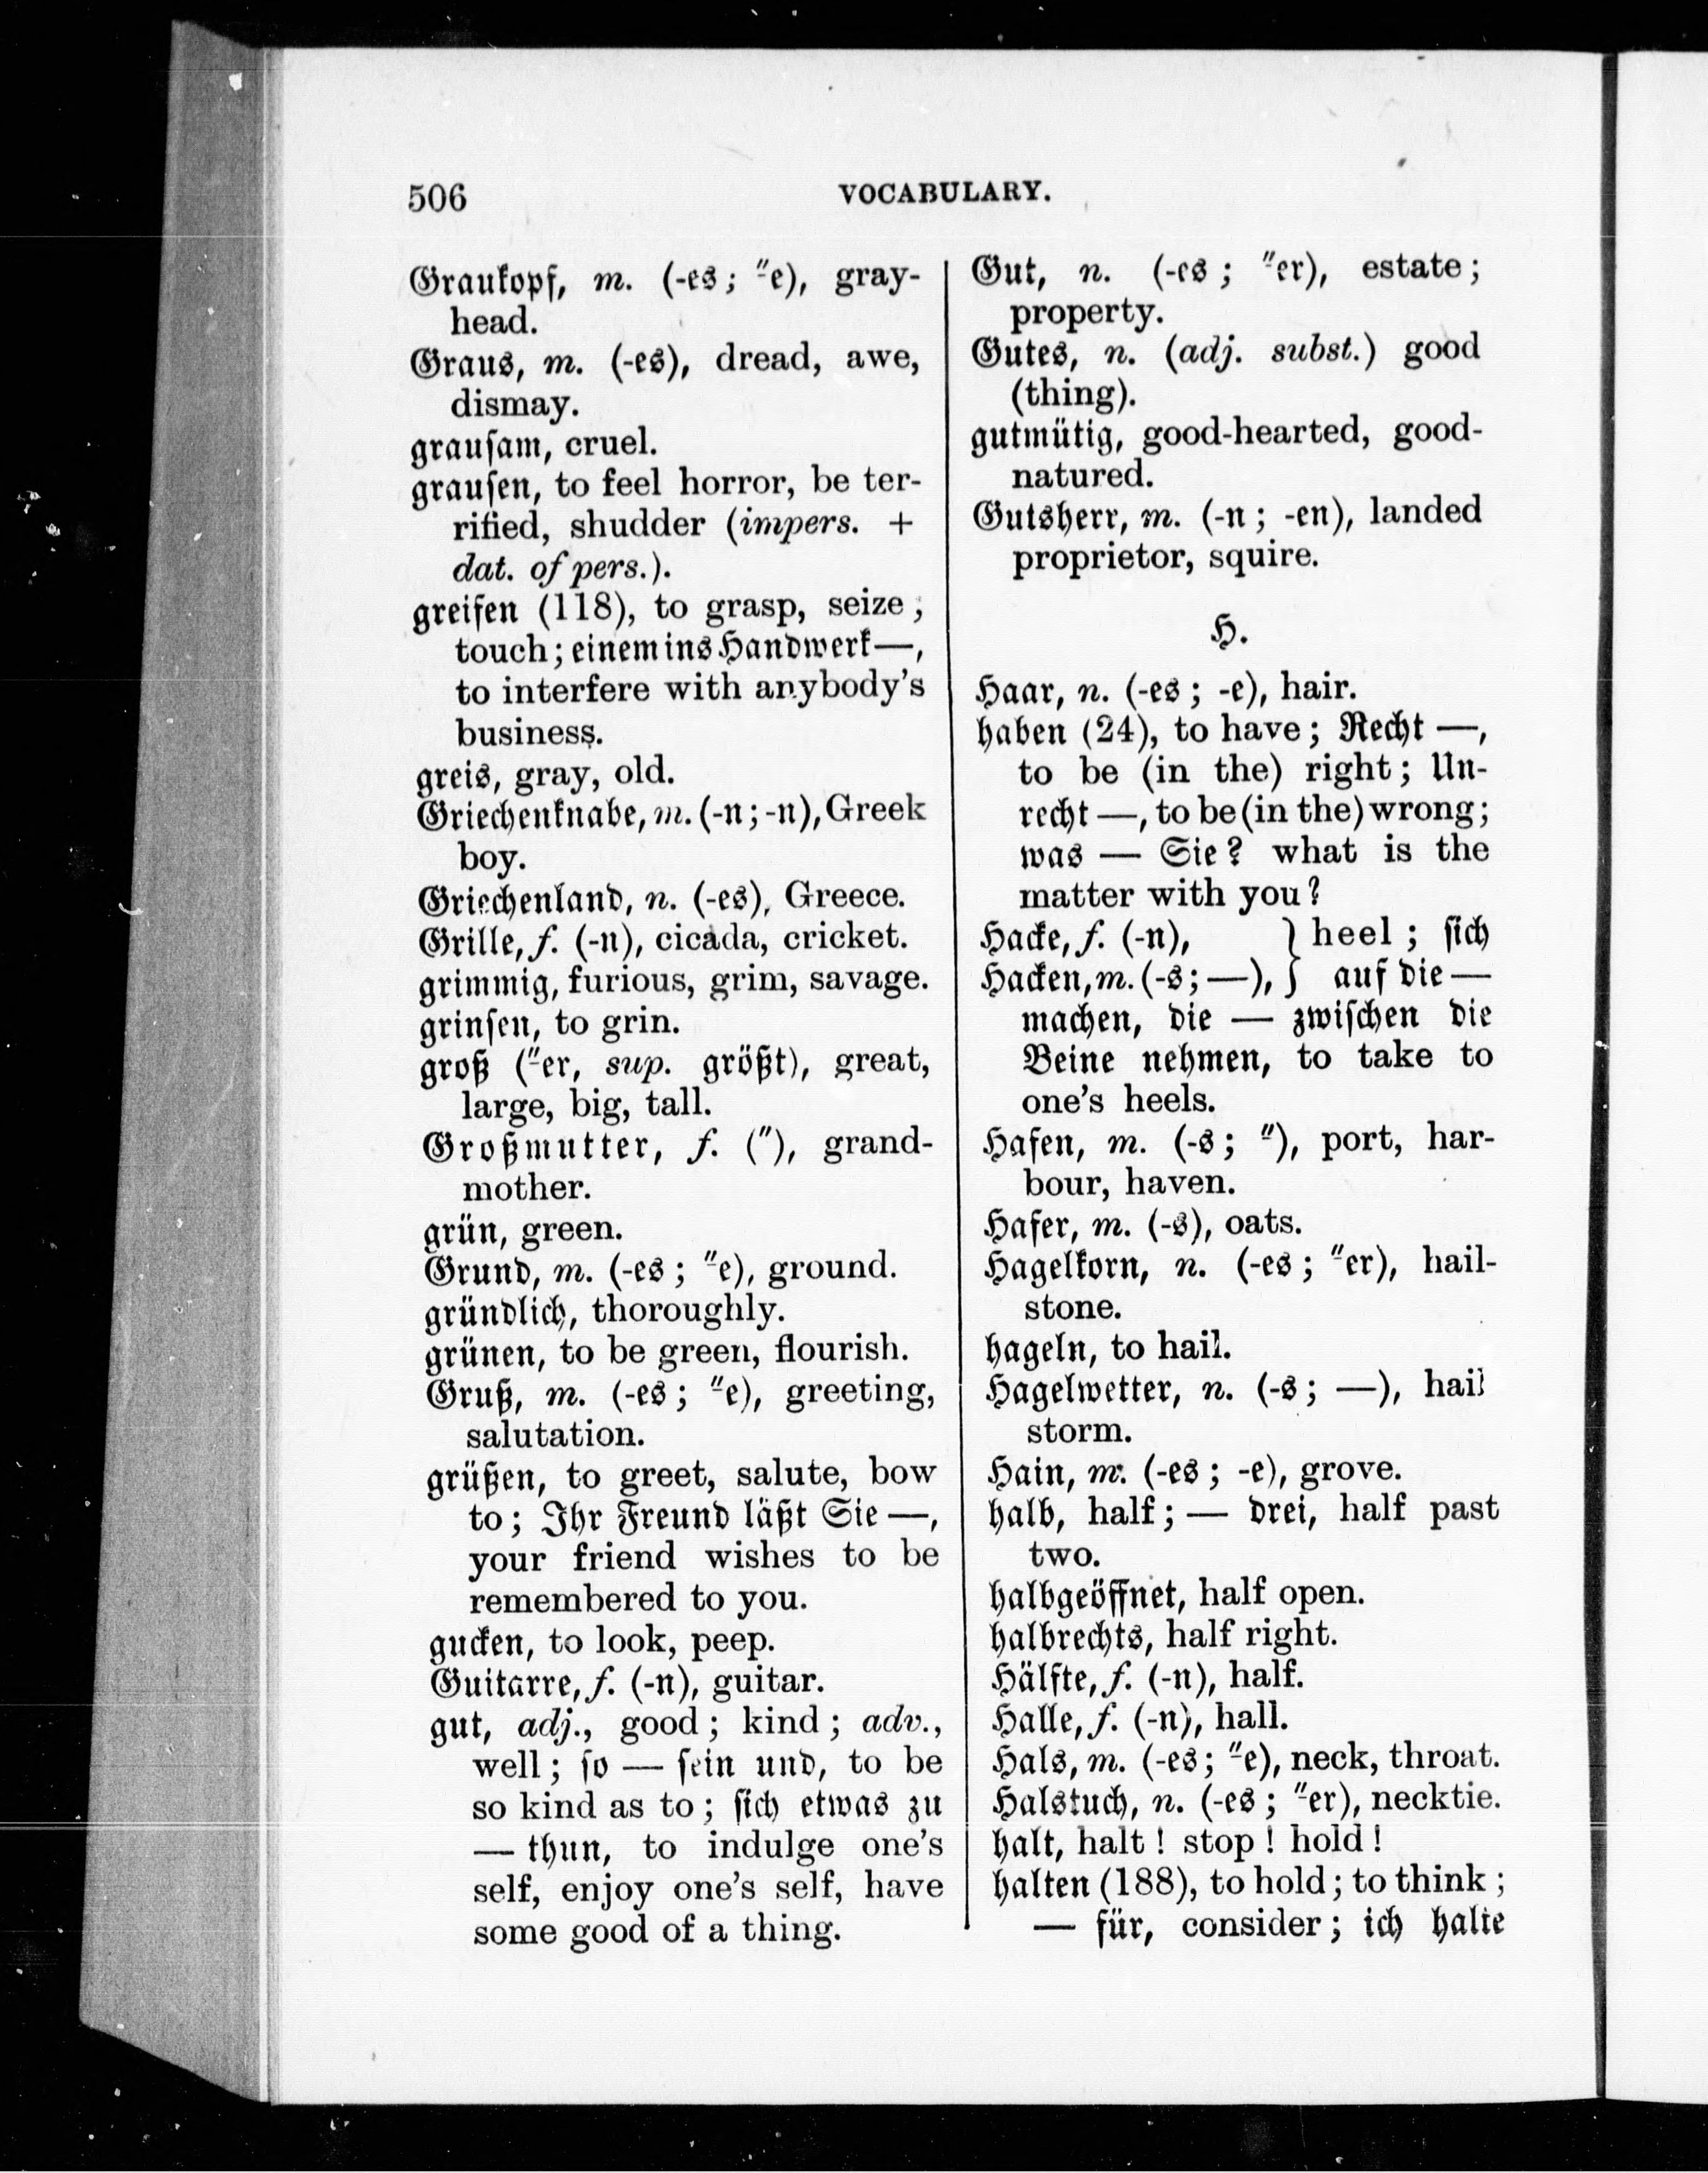 506
VOCABULARY.
Graukopf, m. (-es; ⸚e), gray-
head.
Graus, m. (-es), dread, awe,
dismay.
grausam, cruel.
grausen, to feel horror, be ter-
rified, shudder (impers. +
dat. of pers.).
greifen (118), to grasp, seize;
touch; einem ins Handwerk—,
to interfere with anybody's
business.
greis, gray, old.
Griechenknabe, m. (-n; -n), Greek
boy.
Griechenland, n. (-es), Greece.
Grille, f. (-n), cicada, cricket.
grimmig, furious, grim, savage.
grinsen, to grin.
groß (⸚er, sup. größt), great,
large, big, tall.
Großmutter, f. ("), grand-
mother.
grün, green.
Grund, m. (-es; ⸚e), ground.
gründlich, thoroughly.
grünen, to be green, flourish.
Gruß, m. (-es; ⸚e), greeting,
salutation.
grüßen, to greet, salute, bow
to; Ihr Freund läßt Sie —,
your friend wishes to be
remembered to you.
gucken, to look, peep.
Guitarre, f. (-n), guitar.
gut, adj., good; kind; adv.,
well; so — sein und, to be
so kind as to; sich etwas zu
— thun, to indulge one's
self, enjoy one's self, have
some good of a thing.
Gut, n. (-es; ⸚er), estate;
property.
Gutes, n. (adj. subst.) good
(thing).
gutmütig, good-hearted, good-
natured.
Gutsherr, m. (-n; -en), landed
proprietor, squire.
H.
Haar, n. (-es; -e), hair.
haben (24), to have; Recht —,
to be (in the) right; Un-
recht —, to be (in the) wrong;
was — Sie? what is the
matter with you?
Hacke, f. (-n), } heel; sich
Hacken, m. (-s; —), } auf die —
machen, die — zwischen die
Beine nehmen, to take to
one's heels.
Hafen, m. (-s; ⸚), port, har-
bour, haven.
Hafer, m. (-s), oats.
Hagelkorn, n. (-es; ⸚er), hail-
stone.
hageln, to hail.
Hagelwetter, n. (-s; —), hail
storm.
Hain, m. (-es; -e), grove.
halb, half; — drei, half past
two.
halbgeöffnet, half open.
halbrechts, half right.
Hälfte, f. (-n), half.
Halle, f. (-n), hall.
Hals, m. (-es; ⸚e), neck, throat.
Halstuch, n. (-es; ⸚er), necktie.
halt, halt! stop! hold!
halten (188), to hold; to think;
— für, consider; ich halte